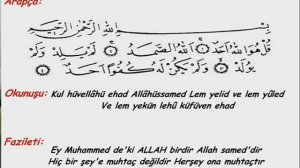 Arapça:
بِسْمِ اللهِ الرَّحْمٰنِ الرَّحِيمِ
قُلْ هُوَ اللهُ اَحَدٌ ۞ اَللهُ الصَّمَدُ ۞ لَمْ يَلِدْ وَلَمْ
يُولَدْ ۞ وَلَمْ يَكُنْ لَهُ كُفُوًا اَحَدٌ ۞
Okunuşu: Kul hüvellâhü ehad Allâhüssamed Lem yelid ve lem yûled
Ve lem yekün lehû küfüven ehad
Fazileti:
Ey Muhammed de'ki ALLAH birdir Allah samed'dir
Hiç bir şey'e muhtaç değildir Herşey ona muhtaçtır